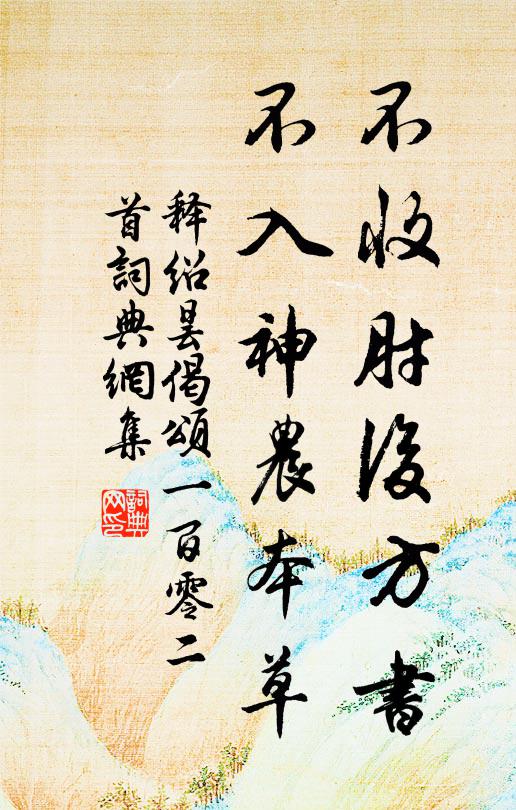 不收肘後方書
不入神農本草
释绍昙偈頌一百零二
首詞典網集
詞典網印